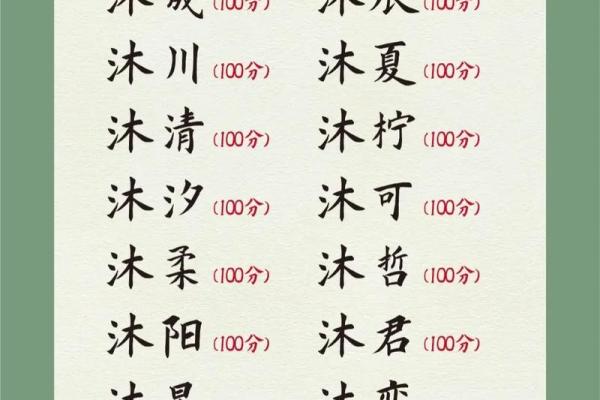 沐晟(100分) 沐辰(100分)
沐川(100分) 沐夏(100分)
沐清(100分) 沐柠(100分)
沐汐(100分) 沐可(100分)
沐柔(100分) 沐哲(100分)
沐阳(100分) 沐君(100分)